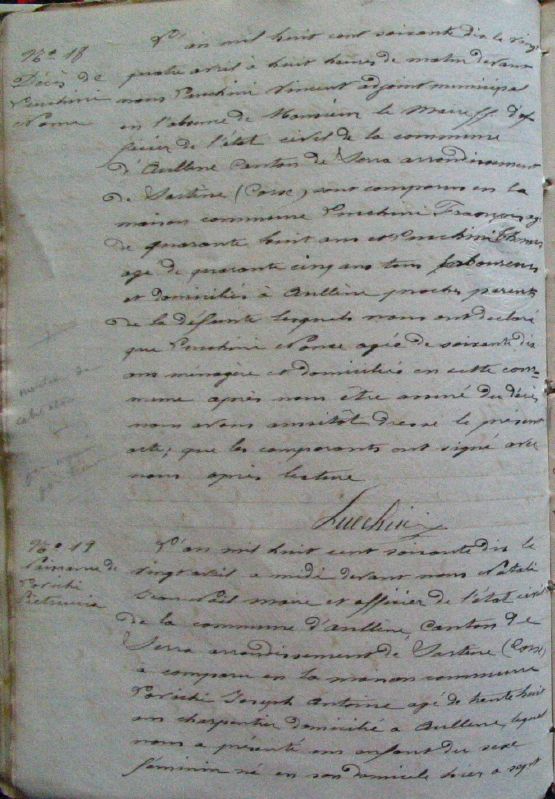 No 18
Décès de
Lucchini
Nonce
L'an mil huit cent soixante dix le vingt
quatre avril à huit heures de matin devant
nous Lucchini Vincent adjoint municipal
en l'absence de Monsieur le Maire ff d'of
ficier de l'état civil de la commune
d'Aullène Canton de Serra arrondissement
de Sartène (Corse) sont comparus en la
maison commune Lucchini François agé
de quarante huit ans et Lucchini
agé de quarante cinq ans tous laboureurs
et domiciliés à Aullène proches parents
de la défunte lesquels nous ont déclaré
que Lucchini Nonce agée de soixante dix
ans ménagère et domiciliée en cette com-
mune après nous être assuré du décès
nous avons aussitôt dressé le présent
acte, que les comparants ont signé avec
nous après lecture
Lucchini
No 19
Naissance de
l'an mil huit cent soixante dix le
vingt avril a midi devant nous
Jean Noël maire et officier de l'état civil
de la commune d'Aullène, Canton de
Serra arrondissement de Sartène (Corse)
a comparu en la maison commune
Joseph Antoine agé de trente huit
ans charpentier domicilié à Aullene, lequel
nous a présenté un enfant du sexe
féminin né en son domicile hier a sept